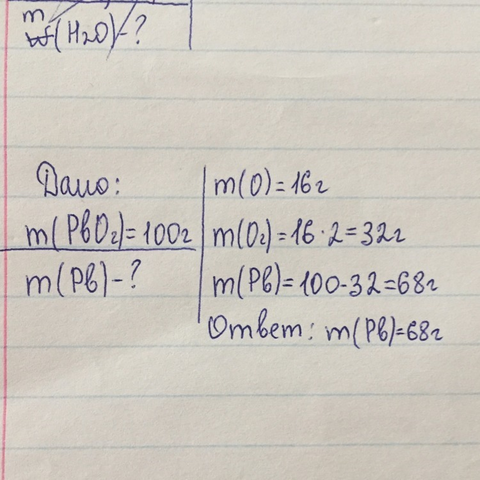 m
(H2O)-?
Дано:
m(PbO2)=100г
m(Pb)-?
m(O)=16г
m(O2)=16·2=32г
m(Pb)=100-32=68г
Ответ: m(Pb)=68г